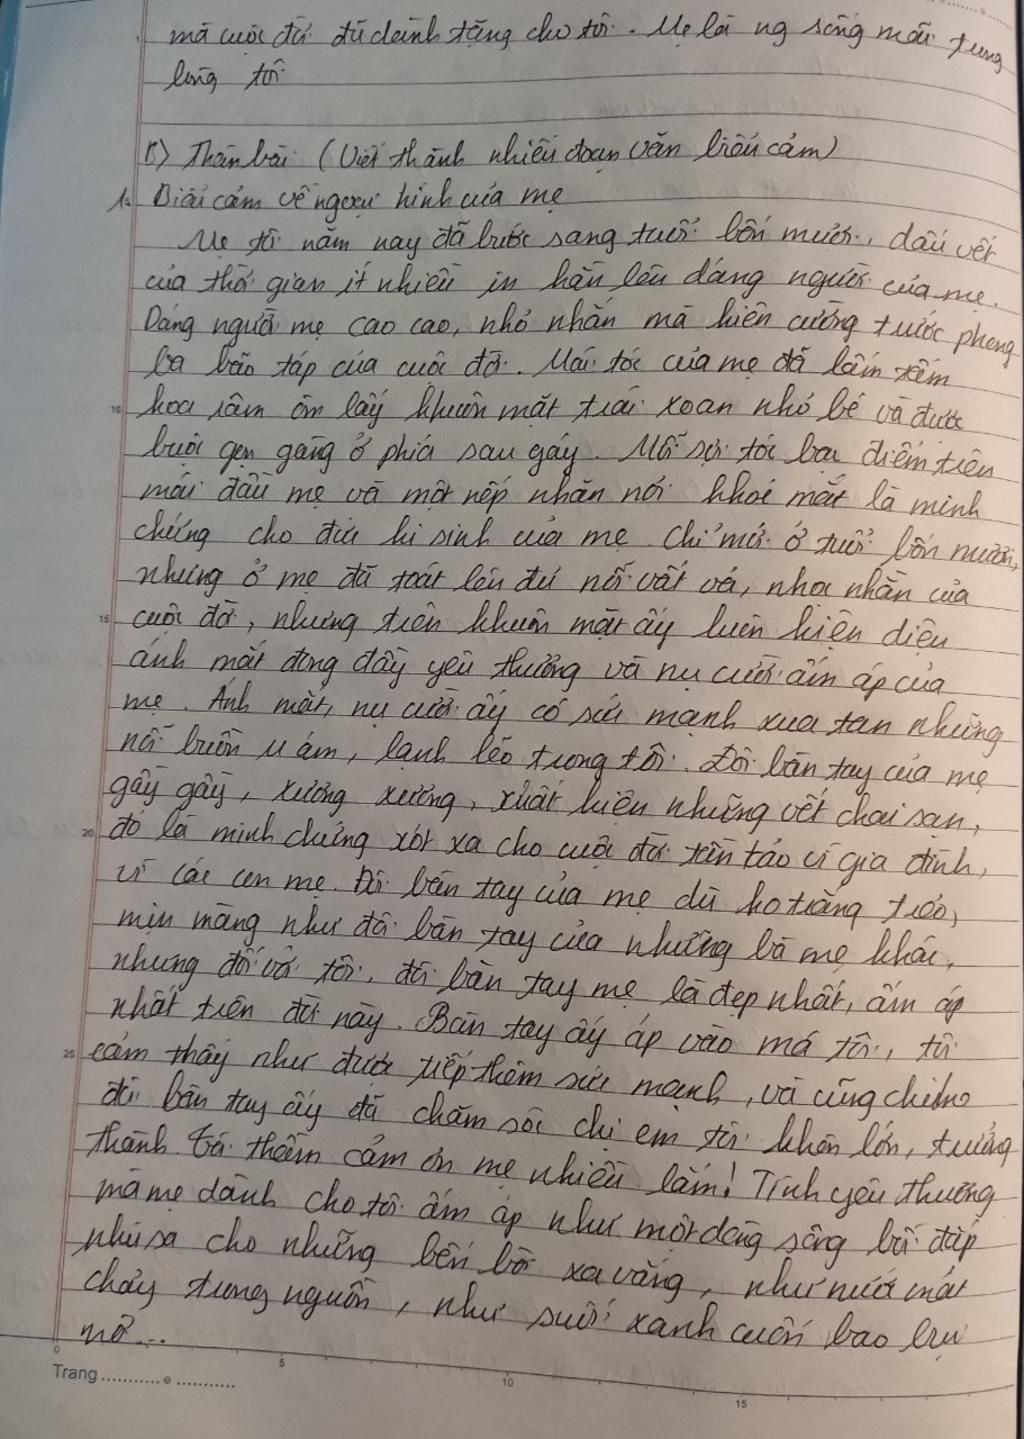 mà cuộc đời đã dành tặng cho tôi. Mẹ là ng sống mãi trong
lòng tôi
b) Thân bài: (Viết thành nhiều đoạn văn biểu cảm)
1. Biểu cảm về ngoại hình của mẹ
Mẹ tôi năm nay đã bước sang tuổi bốn mươi, dấu vết
của thời gian ít nhiều in hằn lên dáng người của mẹ.
Dáng người mẹ cao cao, nhỏ nhắn mà kiên cường trước phong
ba bão táp của cuộc đời. Mái tóc của mẹ đã lấm tấm
hoa râm ôm lấy khuôn mặt trái xoan nhỏ bé và được
buộc gọn gàng ở phía sau gáy. Mỗi sợi tóc bạc điểm trên
mái đầu mẹ và một nếp nhăn nơi khoé mắt là minh
chứng cho đức hi sinh của mẹ. Chỉ mới ở tuổi bốn mươi,
nhưng ở mẹ đã toát lên đủ nỗi vất vả, nhọc nhằn của
cuộc đời, nhưng trên khuôn mặt ấy luôn hiện diện
ánh mắt đong đầy yêu thương và nụ cười ấm áp của
mẹ. Ánh mắt, nụ cười ấy có sức mạnh xua tan những
nỗi buồn u ám, lạnh lẽo trong tôi. Đôi bàn tay của mẹ
gầy gầy, xương xương, xuất hiện những vết chai sạn,
đó là minh chứng xót xa cho cuộc đời tần tảo vì gia đình,
vì các con mẹ. Đôi bàn tay của mẹ dù ko trắng trẻo,
mịn màng như đôi bàn tay của những bà mẹ khác,
nhưng đối với tôi, đôi bàn tay mẹ là đẹp nhất, ấm áp
nhất trên đời này. Bàn tay ấy áp vào má tôi, tôi
cảm thấy như được tiếp thêm sức mạnh, và cũng chính
đôi bàn tay ấy đã chăm sóc chị em tôi khôn lớn, trưởng
thành. Tôi thầm cảm ơn mẹ nhiều lắm! Tình yêu thương
mà mẹ dành cho tôi ấm áp như một dòng sông bồi đắp
phù sa cho những bến bờ xa vắng, như nước mát
chảy trong nguồn, như suối xanh cuốn bao bụi
mờ...
Trang